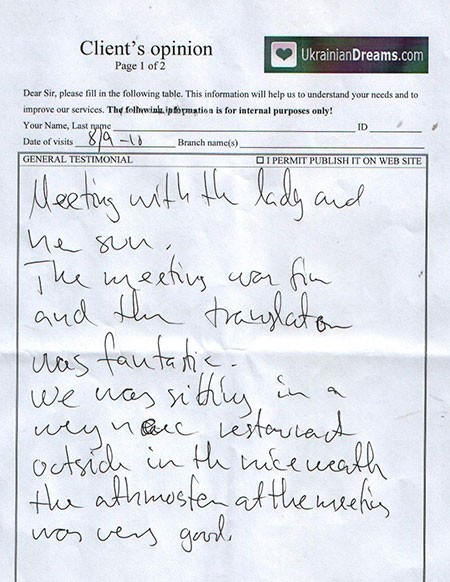 Client's opinion
Page 1 of 2
UkrainianDreams.com
Dear Sir, please fill in the following table. This information will help us to understand your needs and to
improve our services. The following information is for internal purposes only!
Your Name, Last name ID
Date of visits 8/9 -10 Branch name(s)
GENERAL TESTIMONIAL ☐ I PERMIT PUBLISH IT ON WEB SITE
Meeting with the lady and
he sun.
The meeting war fin
and the translaton
was fantastic.
We was sitting in a
wery restaurant
outside in the nice weath
the athmosfen at the meeting
was very good.